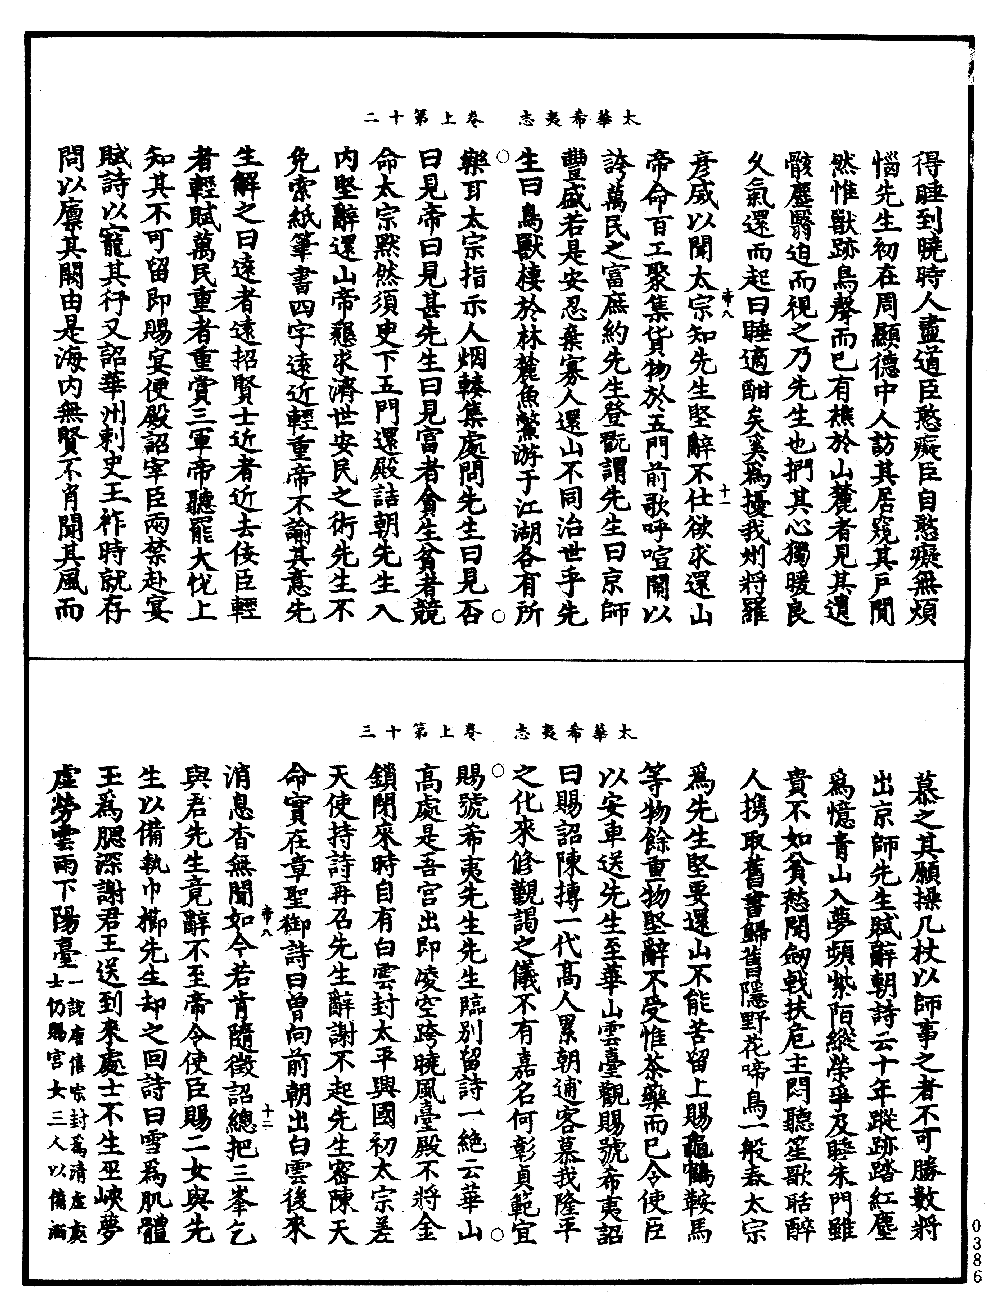 太華希夷志　卷上第十二
得睡到曉時人盡道臣憨癡臣自憨癡無煩
惱先生初在周顯德中人訪其居窺其戶閴
然惟獸跡鳥聲而已有樵於山麓者見其遺
骸塵翳迫而視之乃先生也捫其心獨暖良
久氣還而起曰睡適酣矣奚爲擾我州將羅
彦威以聞太宗知先生堅辭不仕欲求還山
帝命百工聚集貨物於五門前歌呼喧鬧以
誇萬民之富庶約先生登翫謂先生曰京師
豐盛若是安忍棄寡人還山不同治世乎先
生曰鳥獸棲於林麓魚鱉游于江湖各有所
樂耳太宗指示人烟輳集處問先生曰見否
曰見帝曰見甚先生曰見富者貪生貧者競
命太宗默然須臾下五門還殿詰朝先生入
内堅辭還山帝懇求濟世安民之術先生不
免索紙筆書四字遠近輕重帝不諭其意先
生解之曰遠者遠招賢士近者近去佞臣輕
者輕賦萬民重者重賞三軍帝聽罷大悅上
知其不可留即賜宴便殿詔宰臣兩禁赴宴
賦詩以寵其行又詔華州刺史王祚時就存
問以廪其闕由是海内無賢不肖聞其風而
帝八
十一
太華希夷志　卷上第十三
慕之其願操几杖以師事之者不可勝數將
出京師先生賦辭朝詩云十年蹤跡踏紅塵
爲憶青山入夢頻紫陌縱榮爭及睡朱門雖
貴不如貧愁聞劒戟扶危主悶聽笙歌聒醉
人携取舊書歸舊隱野花啼鳥一般春太宗
爲先生堅要還山不能苦留上賜龜鶴鞍馬
等物餘重物堅辭不受惟茶藥而已令使臣
以安車送先生至華山雲臺觀賜號希夷詔
曰賜詔陳摶一代高人累朝逋客慕我隆平
之化來修覲謁之儀不有嘉名何彰貞範宜
賜號希夷先生先生臨別留詩一絶云華山
高處是吾宮出即凌空跨曉風臺殿不將金
鎖閉來時自有白雲封太平興國初太宗差
天使持詩再召先生辭謝不起先生密陳天
命實在章聖御詩曰曾向前朝出白雲後來
消息杳無聞如今若肯隨徵詔總把三峯乞
與君先生竟辭不至帝令使臣賜二女與先
生以備執巾櫛先生却之回詩曰雪爲肌體
玉爲腮深謝君王送到來處士不生巫峽夢
虛勞雲雨下陽臺一說唐僖宗封爲清虛處
士仍賜宮女三人以備洒
帝八
十二
0386